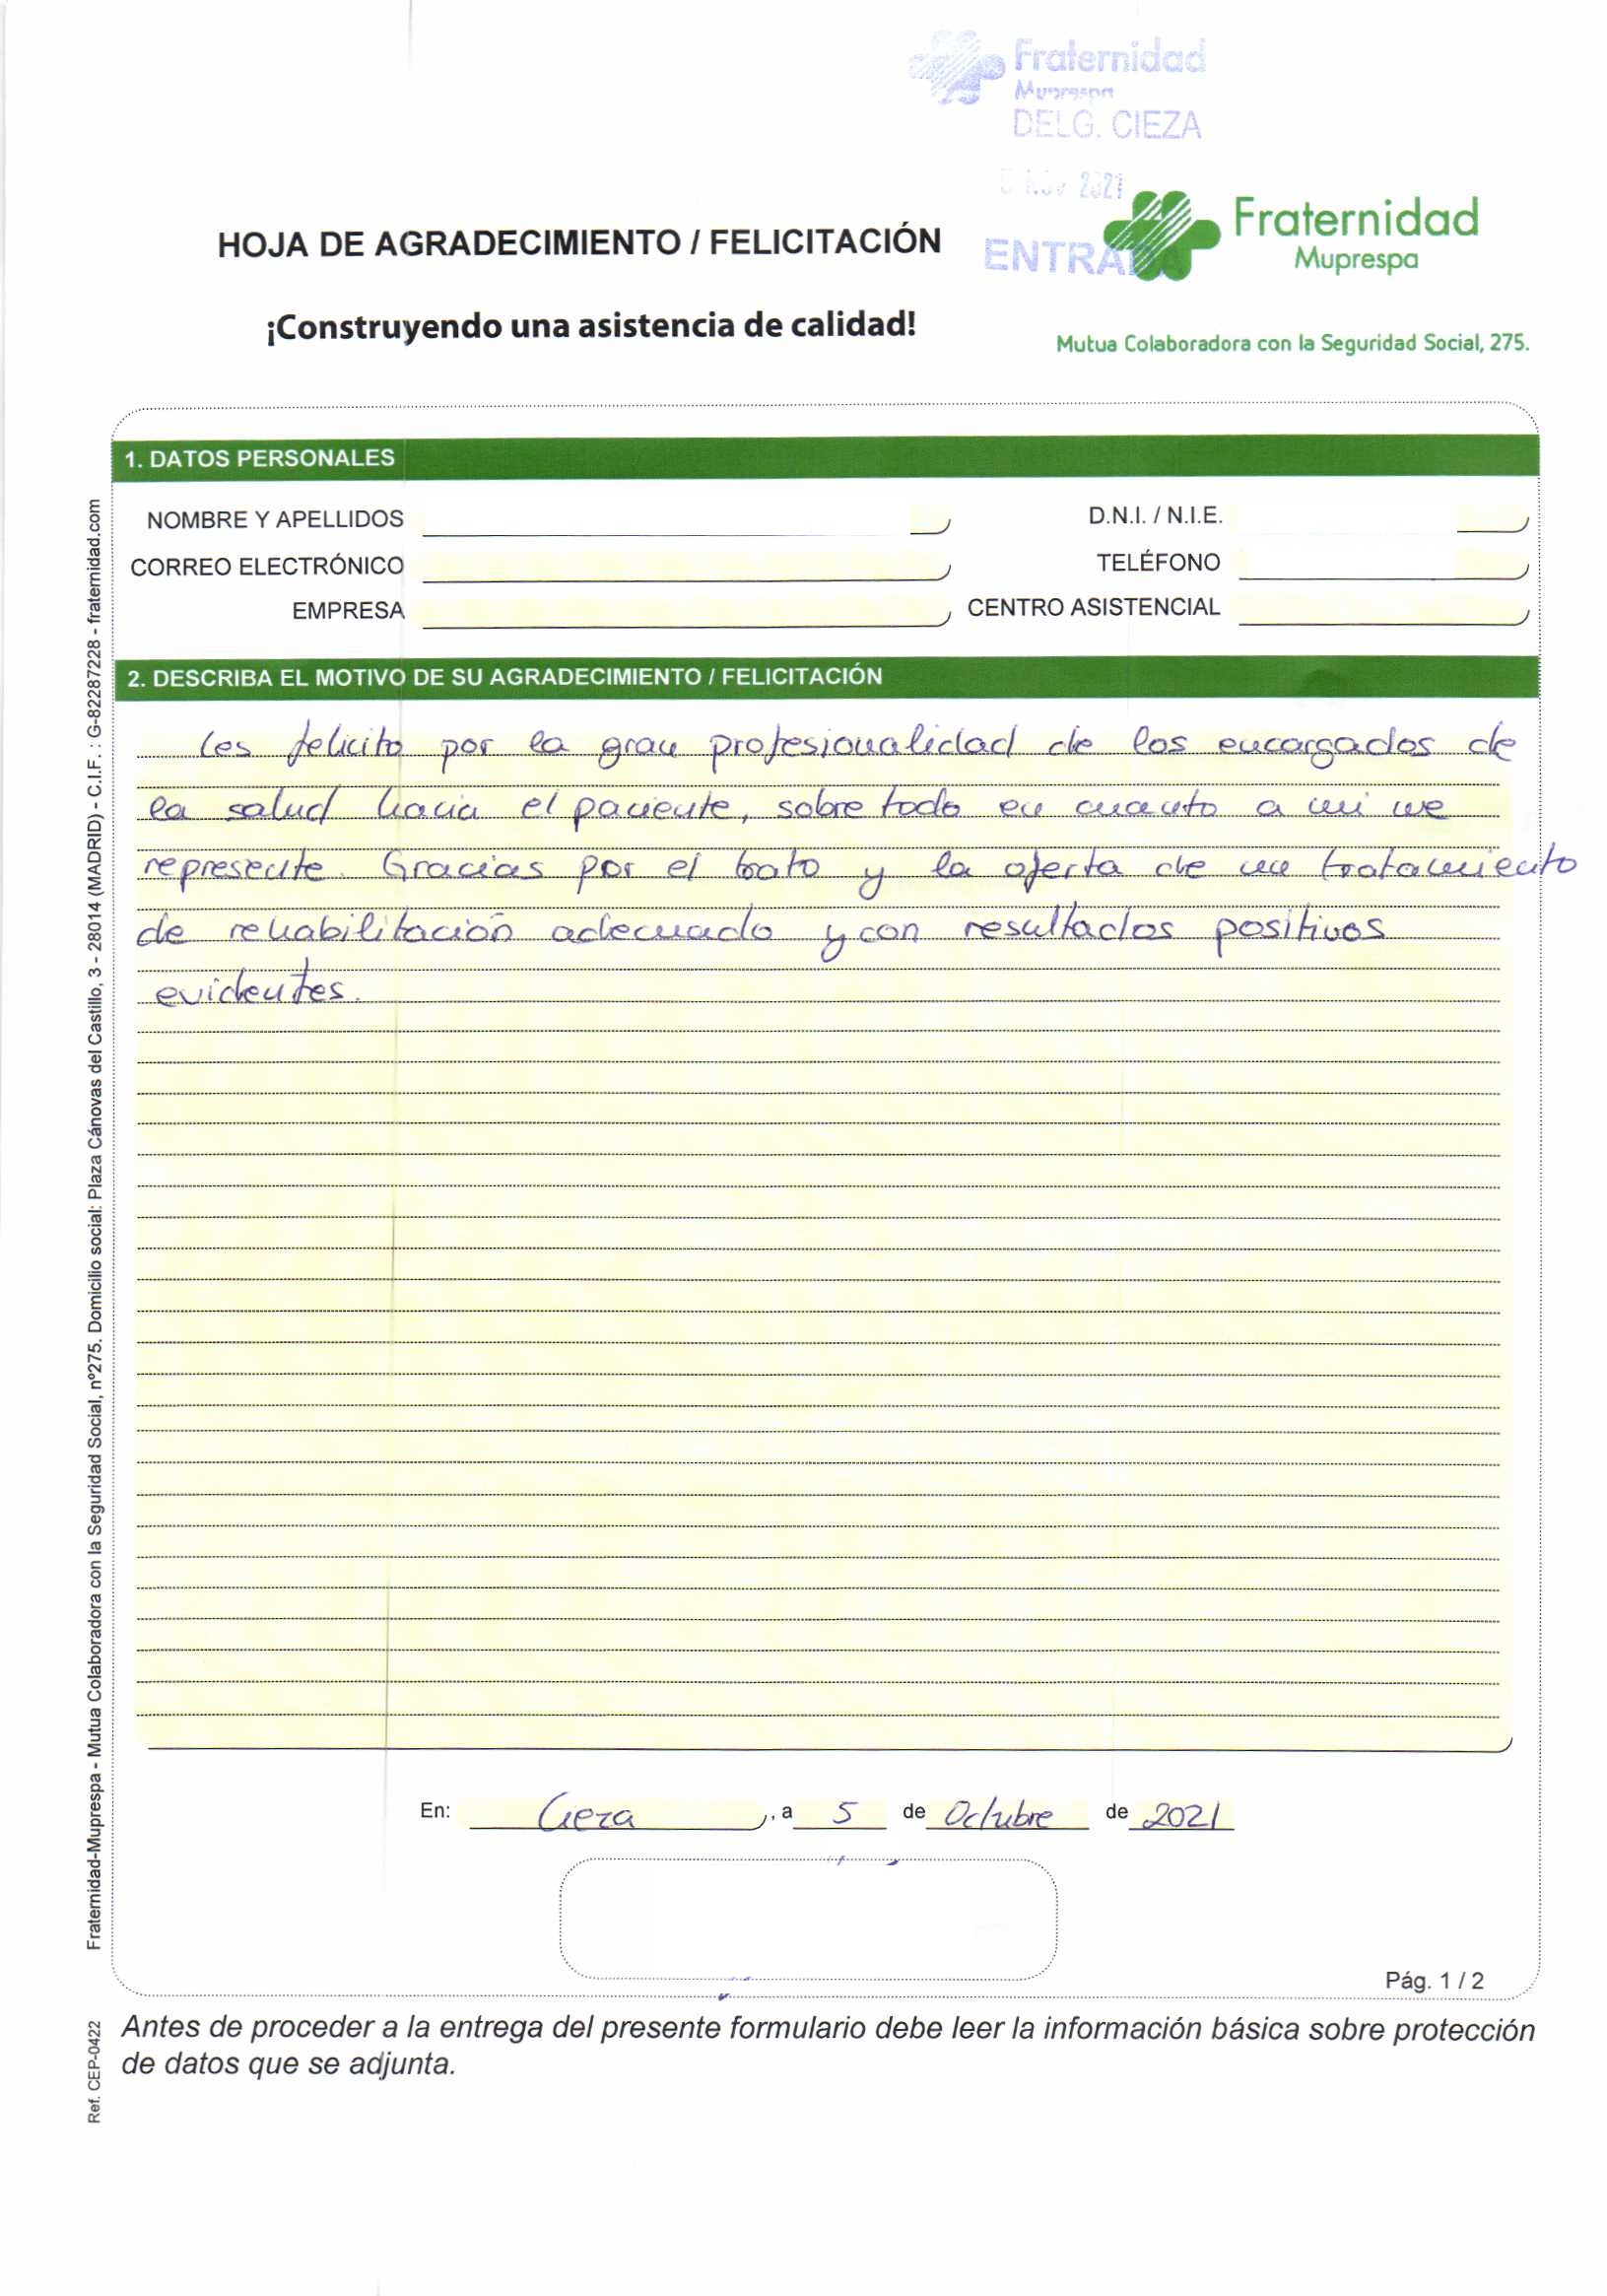 Fraternidad
Muprespa
DELG. CIEZA
2021
ENTRADA
Fraternidad
Muprespa
HOJA DE AGRADECIMIENTO / FELICITACIÓN
¡Construyendo una asistencia de calidad!
Mutua Colaboradora con la Seguridad Social, 275.
1. DATOS PERSONALES
NOMBRE Y APELLIDOS D.N.I. / N.I.E.
CORREO ELECTRÓNICO TELÉFONO
EMPRESA CENTRO ASISTENCIAL
2. DESCRIBA EL MOTIVO DE SU AGRADECIMIENTO / FELICITACIÓN
Les felicito por la gran profesionalidad de los encargados de
la salud hacia el paciente, sobre todo en cuanto a mi me
represente. Gracias por el trato y la oferta de un tratamiento
de rehabilitación adecuado y con resultados positivos
evidentes.
En: Cieza, a 5 de Octubre de 2021
Pág. 1 / 2
Antes de proceder a la entrega del presente formulario debe leer la información básica sobre protección
de datos que se adjunta.
Fraternidad-Muprespa - Mutua Colaboradora con la Seguridad Social, nº275. Domicilio social: Plaza Cánovas del Castillo, 3 - 28014 (MADRID) - C.I.F. : G-82287228 - fraternidad.com
Ref. CEP-0422